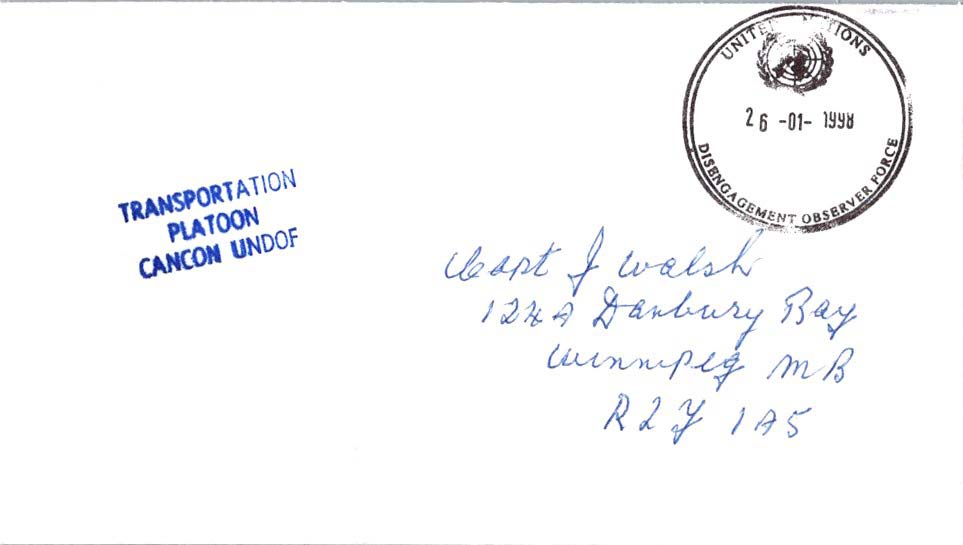 UNITED NATIONS
26 -01- 1998
DISENGAGEMENT OBSERVER FORCE
TRANSPORTATION
PLATOON
CANCON UNDOF
Capt J Walsh
Danbury Bay
Winnipeg MB
R2Y 1A5